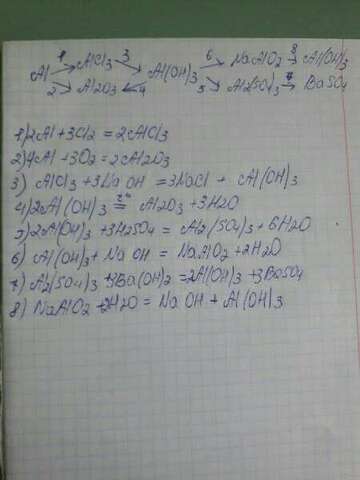 1 AlCl3 3 6 NaAlO2 8 Al(OH)3
Al Al(OH)3
2 Al2O3 4 5 Al2(SO4)3 7 BaSO4
1) 2Al + 3Cl2 = 2AlCl3
2) 4Al + 3O2 = 2Al2O3
3) AlCl3 + 3NaOH = 3NaCl + Al(OH)3
4) 2Al(OH)3 = Al2O3 + 3H2O
5) 2Al(OH)3 + 3H2SO4 = Al2(SO4)3 + 6H2O
6) Al(OH)3 + NaOH = NaAlO2 + 2H2O
7) Al2(SO4)3 + 3Ba(OH)2 = 2Al(OH)3 + 3BaSO4
8) NaAlO2 + 2H2O = NaOH + Al(OH)3